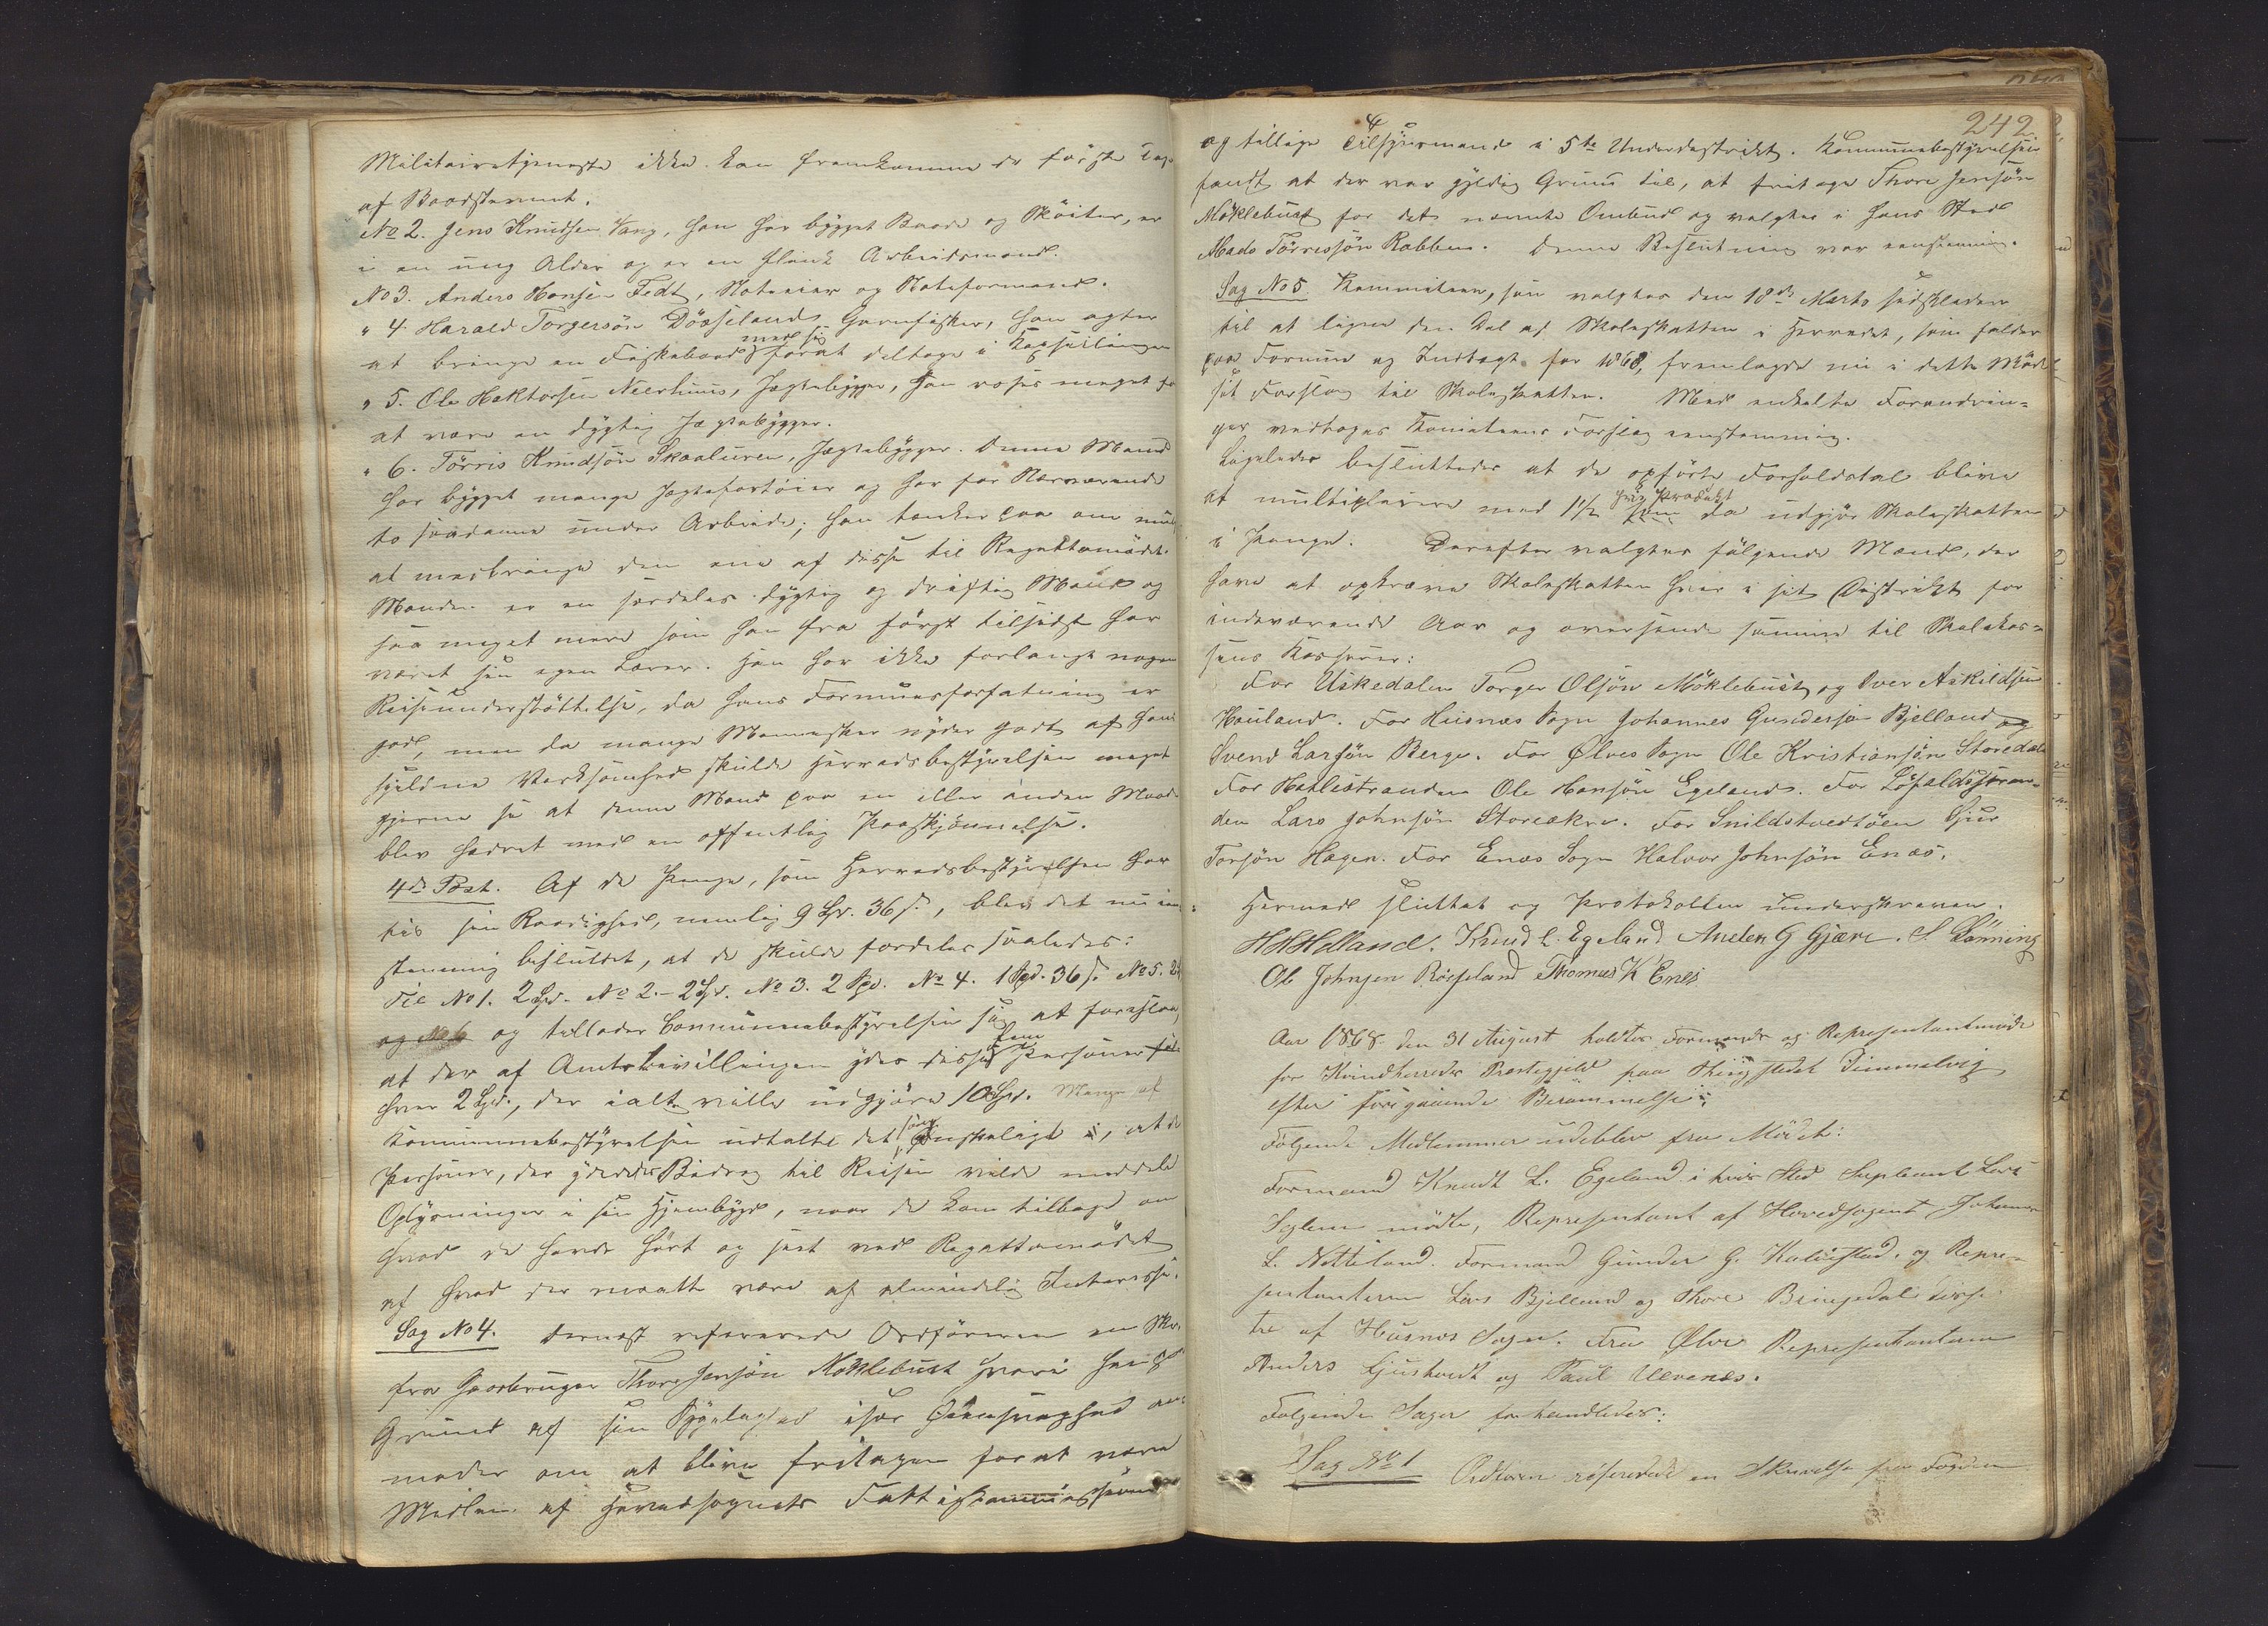 Militairetjeneste ikke kan fremkomme de første Dage
af Baadstevnet.
No 2. Jens Knudsen Vang, han har bygget Baade og Skøiter, er
i en ung Alder og er en flink Arbeidsmand.
No 3. Anders Hansen Fedt, Noteeier og Noteformand.
" 4. Harald Torgersøn Døsseland, Garnfisker, han agter
at bringe en Fiskebaad med sig forat deltage i Kapseilingen
" 5. Ole Haktorsen Neerhuus, Jægtebygger, han roses meget for
at være en dygtig Jægtebygger.
" 6. Tørris Knudsøn Skaaluren, Jægtebygger. Denne Mand
har bygget mange Jagtefartøier og har for Nærværende
to saadanne under Arbeide; han tænker paa om muligt
at medbringe den ene af disse til Regattamødet.
Manden er en særdeles dygtig og driftig Mand og
saa meget mere som han fra først til sidst har
været sin egen Lærer. Han har ikke forlangt nogen
Reiseunderstøttelse, da hans Formuesforfatning er
god, men da mange Mennesker nyder godt af hans
sjeldne Verksomhed skulde Herredsbestyrelsen meget
gjerne se at denne Mand paa en eller anden Maade
blev hædret med en offentlig Paaskjønnelse.
4de Post. Af de Penge, som Herredsbestyrelsen har
til sin Raadighed, nemlig 9 Spd. 36 s., blev det nu een-
stemmig besluttet, at de skulde fordeles saaledes:
Til No 1. 2 Spd. No 2. - 2 Spd. No 3. 2 Spd. No 4. 1 Spd. 36 s. No 5. 2
og No 6 og tillader Communebestyrelsen sig at foreslaa,
at der af Amtsbevillingen ydes disse fem Personer
hver 2 Spd., der ialt ville udgjøre 10 Spd. Mange af
Kommunebestyrelsen udtalte det som ønskeligt, at de
Personer, der ydedes Bidrag til Reisen vilde meddele
Oplysninger i sin Hjembygd, naar de kom tilbage om
hvad de havde hørt og seet ved Regattamødet
af hvad der maatte være af almindelig Interesse.
Sag No 4. Dernæst refererede Ordføreren en Skr.
fra Gaardbruger Thore Jensøn Møklebust hvori han paa
Grund af sin Sygelighed især Øiensvaghed an-
moder om at blive fritagen for at være
Medlem af Hovedsognets Fattigkommission
242
og tillige Tilsynsmand i 5te Underdistrikt. Kommunebestyrelsen
fandt at der var gyldig Grund til, at fritage Thore Jensøn
Møklebust for det nævnte Ombud og valgtes i hans Sted
Mads Tørrissøn Rabben. Denne Beslutning var eenstemmig.
Sag No 5 Kommiteen, som valgtes den 18de Marts sidstleden
til at ligne den Del af Skoleskatten i Herredet, som falder
paa Formue og Indtægt for 1868, fremlagde nu i dette Møde
sit Forslag til Skoleskatten. Med enkelte Forandrin-
ger vedtoges Komiteens Forslag eenstemmig.
Ligeledes besluttedes at de opførte Forholdstal blive
at multiplicere med 1½ hvis Produkt da udgjør Skoleskatten
i Penge. Derefter valgtes følgende Mænd, der
have at opkræve Skoleskatten hver i sit Distrikt for
indeværende Aar og oversende samme til Skolekas-
sens Kasserer:
For Uskedalen Torger Olsøn Møklebust og Iver Askildsen
Houland. For Husnæs Sogn Johannes Gundersøn Bjelland og
Svend Larsøn Berge. For Ølves Sogn Ole Kristiansøn Storedal
For Hatlestranden Ole Hansøn Egeland. For Løfaldsstran-
den Lars Johnsøn Storeakre. For Snildstvedtøen Sjur
Torsøn Hagen. For Enæs Sogn Halvor Johnsøn Enæs.
Hermed sluttet og Protokollen underskreven.
H H Holland. Knud L. Egeland Anders G Gjære. S. Lønning
Ole Johnsen Røsseland Thomas K Enes
Aar 1868 den 31 August holdtes Formands og Representantmøde
for Kvindherreds Præstegjeld paa Thingstedet Dimmelvig
efter foregaaende Berammelse:
Følgende Medlemmer udebleve fra Mødet:
Formand Knudt L. Egeland i hvis Sted Supleant Lars
Seglem mødte, Representant af Hovedsognet Johannes
L. Netteland. Formand Gunder G. Kaldestad. og Repre-
sentanterne Lars Bjelland og Thore Bringedal disse
tre af Husnæs Sogn. Fra Ølve Representanterne
Anders Ljusthvedt og Paul Ulvenæs.
Følgende Sager forhandledes:
Sag No 1 Ordføren refererede en Skrivelse fra Fogden